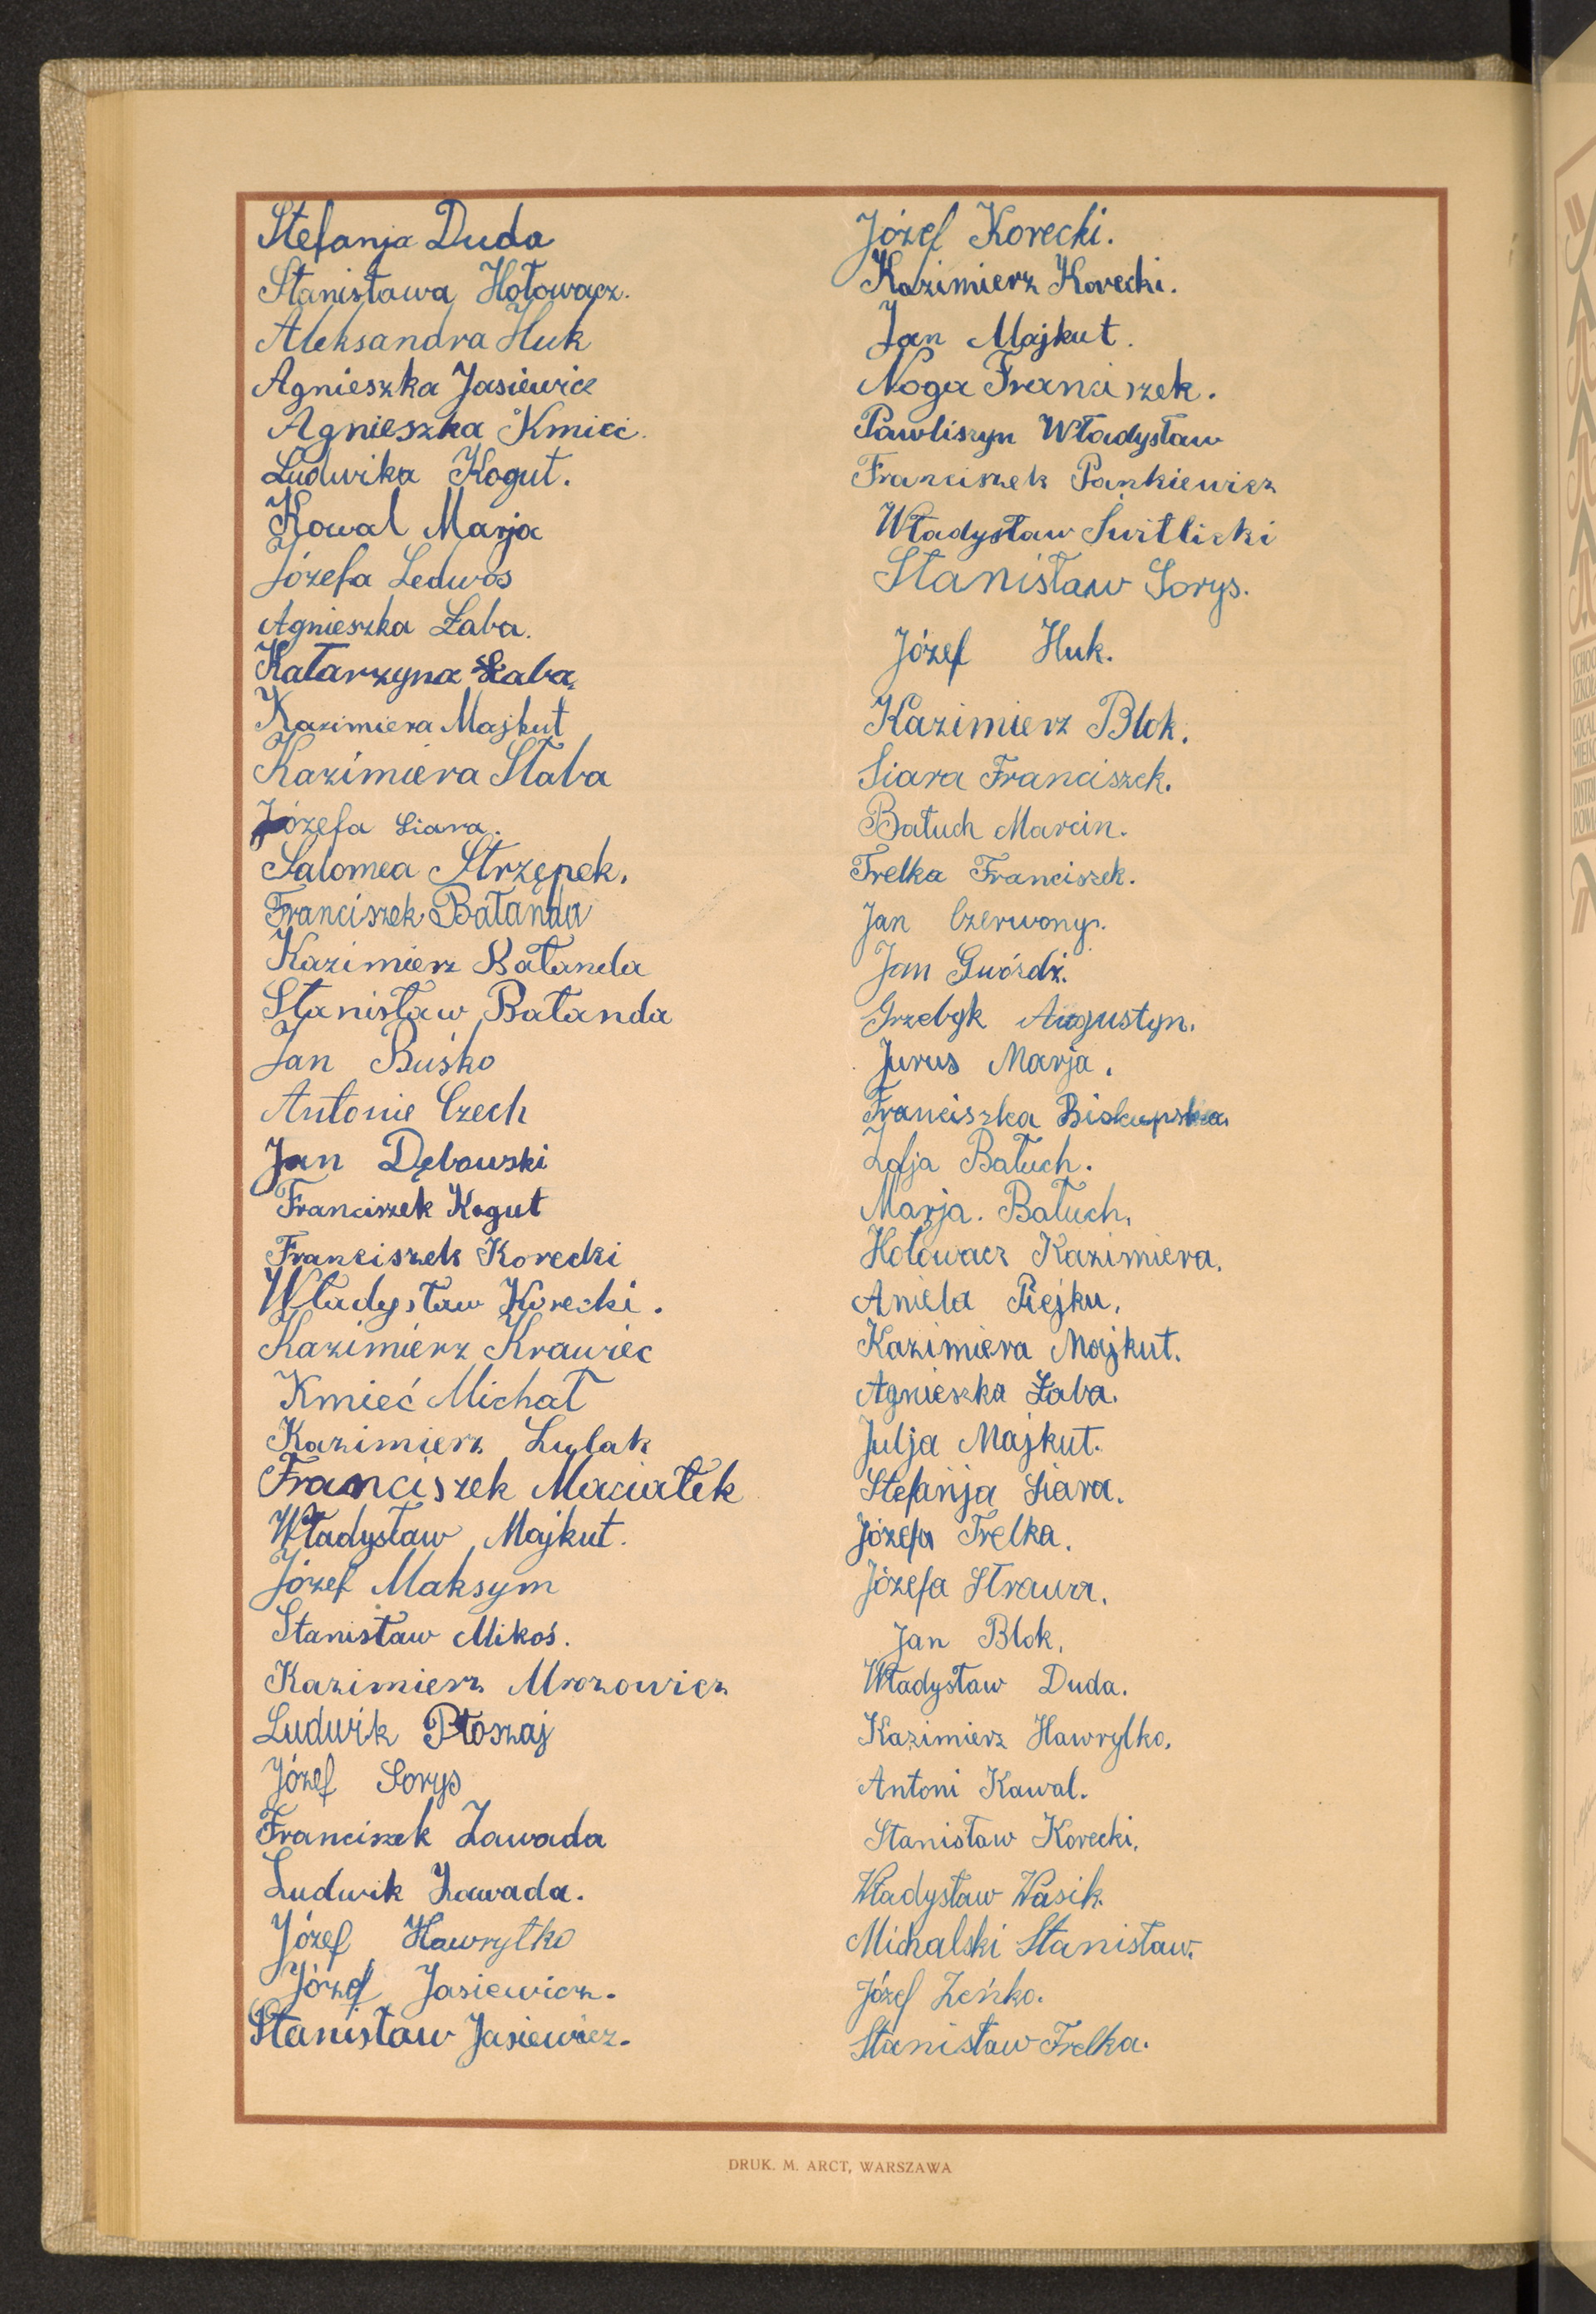 Stefanja Duda
Stanisława Hołowacz.
Aleksandra Huk
Agnieszka Jasiewicz
Agnieszka Kmieć.
Ludwika Kogut.
Kowal Marja
Józefa Ledwos
Agnieszka Łaba.
Katarzyna Łaba
Kazimiera Majkut
Kazimiera Słaba
Józefa Siara.
Salomea Strzępek.
Franciszek Bałanda
Kazimierz Bałanda
Stanisław Bałanda
Jan Buśko
Antonie Czech
Jan Dębowski
Franciszek Kogut
Franciszek Korecki
Władysław Korecki.
Kazimierz Krawiec
Kmieć Michał
Kazimierz Lulak
Franciszek Maciałek
Władysław Majkut.
Józef Maksym
Stanisław Mikoś.
Kazimierz Mrozowicz
Ludwik Płoszaj
Józef Sorys
Franciszek Zawada
Ludwik Zawada.
Józef Hawryłko
Józef Jasiewicz.
Stanisław Jasiewicz.
Józef Korecki.
Kazimierz Korecki.
Jan Majkut.
Noga Franciszek.
Pawliszyn Władysław
Franciszek Pankiewicz
Władysław Świtlicki
Stanisław Sorys.
Józef Huk.
Kazimierz Blok.
Siara Franciszek.
Bałuch Marcin.
Trelka Franciszek.
Jan Czerwony.
Jan Gwóźdź.
Grzebyk Augustyn.
Jurus Marja.
Franciszka Biskupska.
Zofja Bałuch.
Marja. Bałuch.
Hołowacz Kazimiera.
Aniela Piejku.
Kazimiera Majkut.
Agnieszka Łaba.
Julja Majkut.
Stefanja Siara.
Józefa Trelka.
Józefa Strawa.
Jan Blok.
Władysław Duda.
Kazimierz Hawrylko.
Antoni Kawal.
Stanisław Korecki.
Władysław Wasik.
Michalski Stanisław.
Józef Zeńko.
Stanisław Trelka.
DRUK. M. ARCT, WARSZAWA